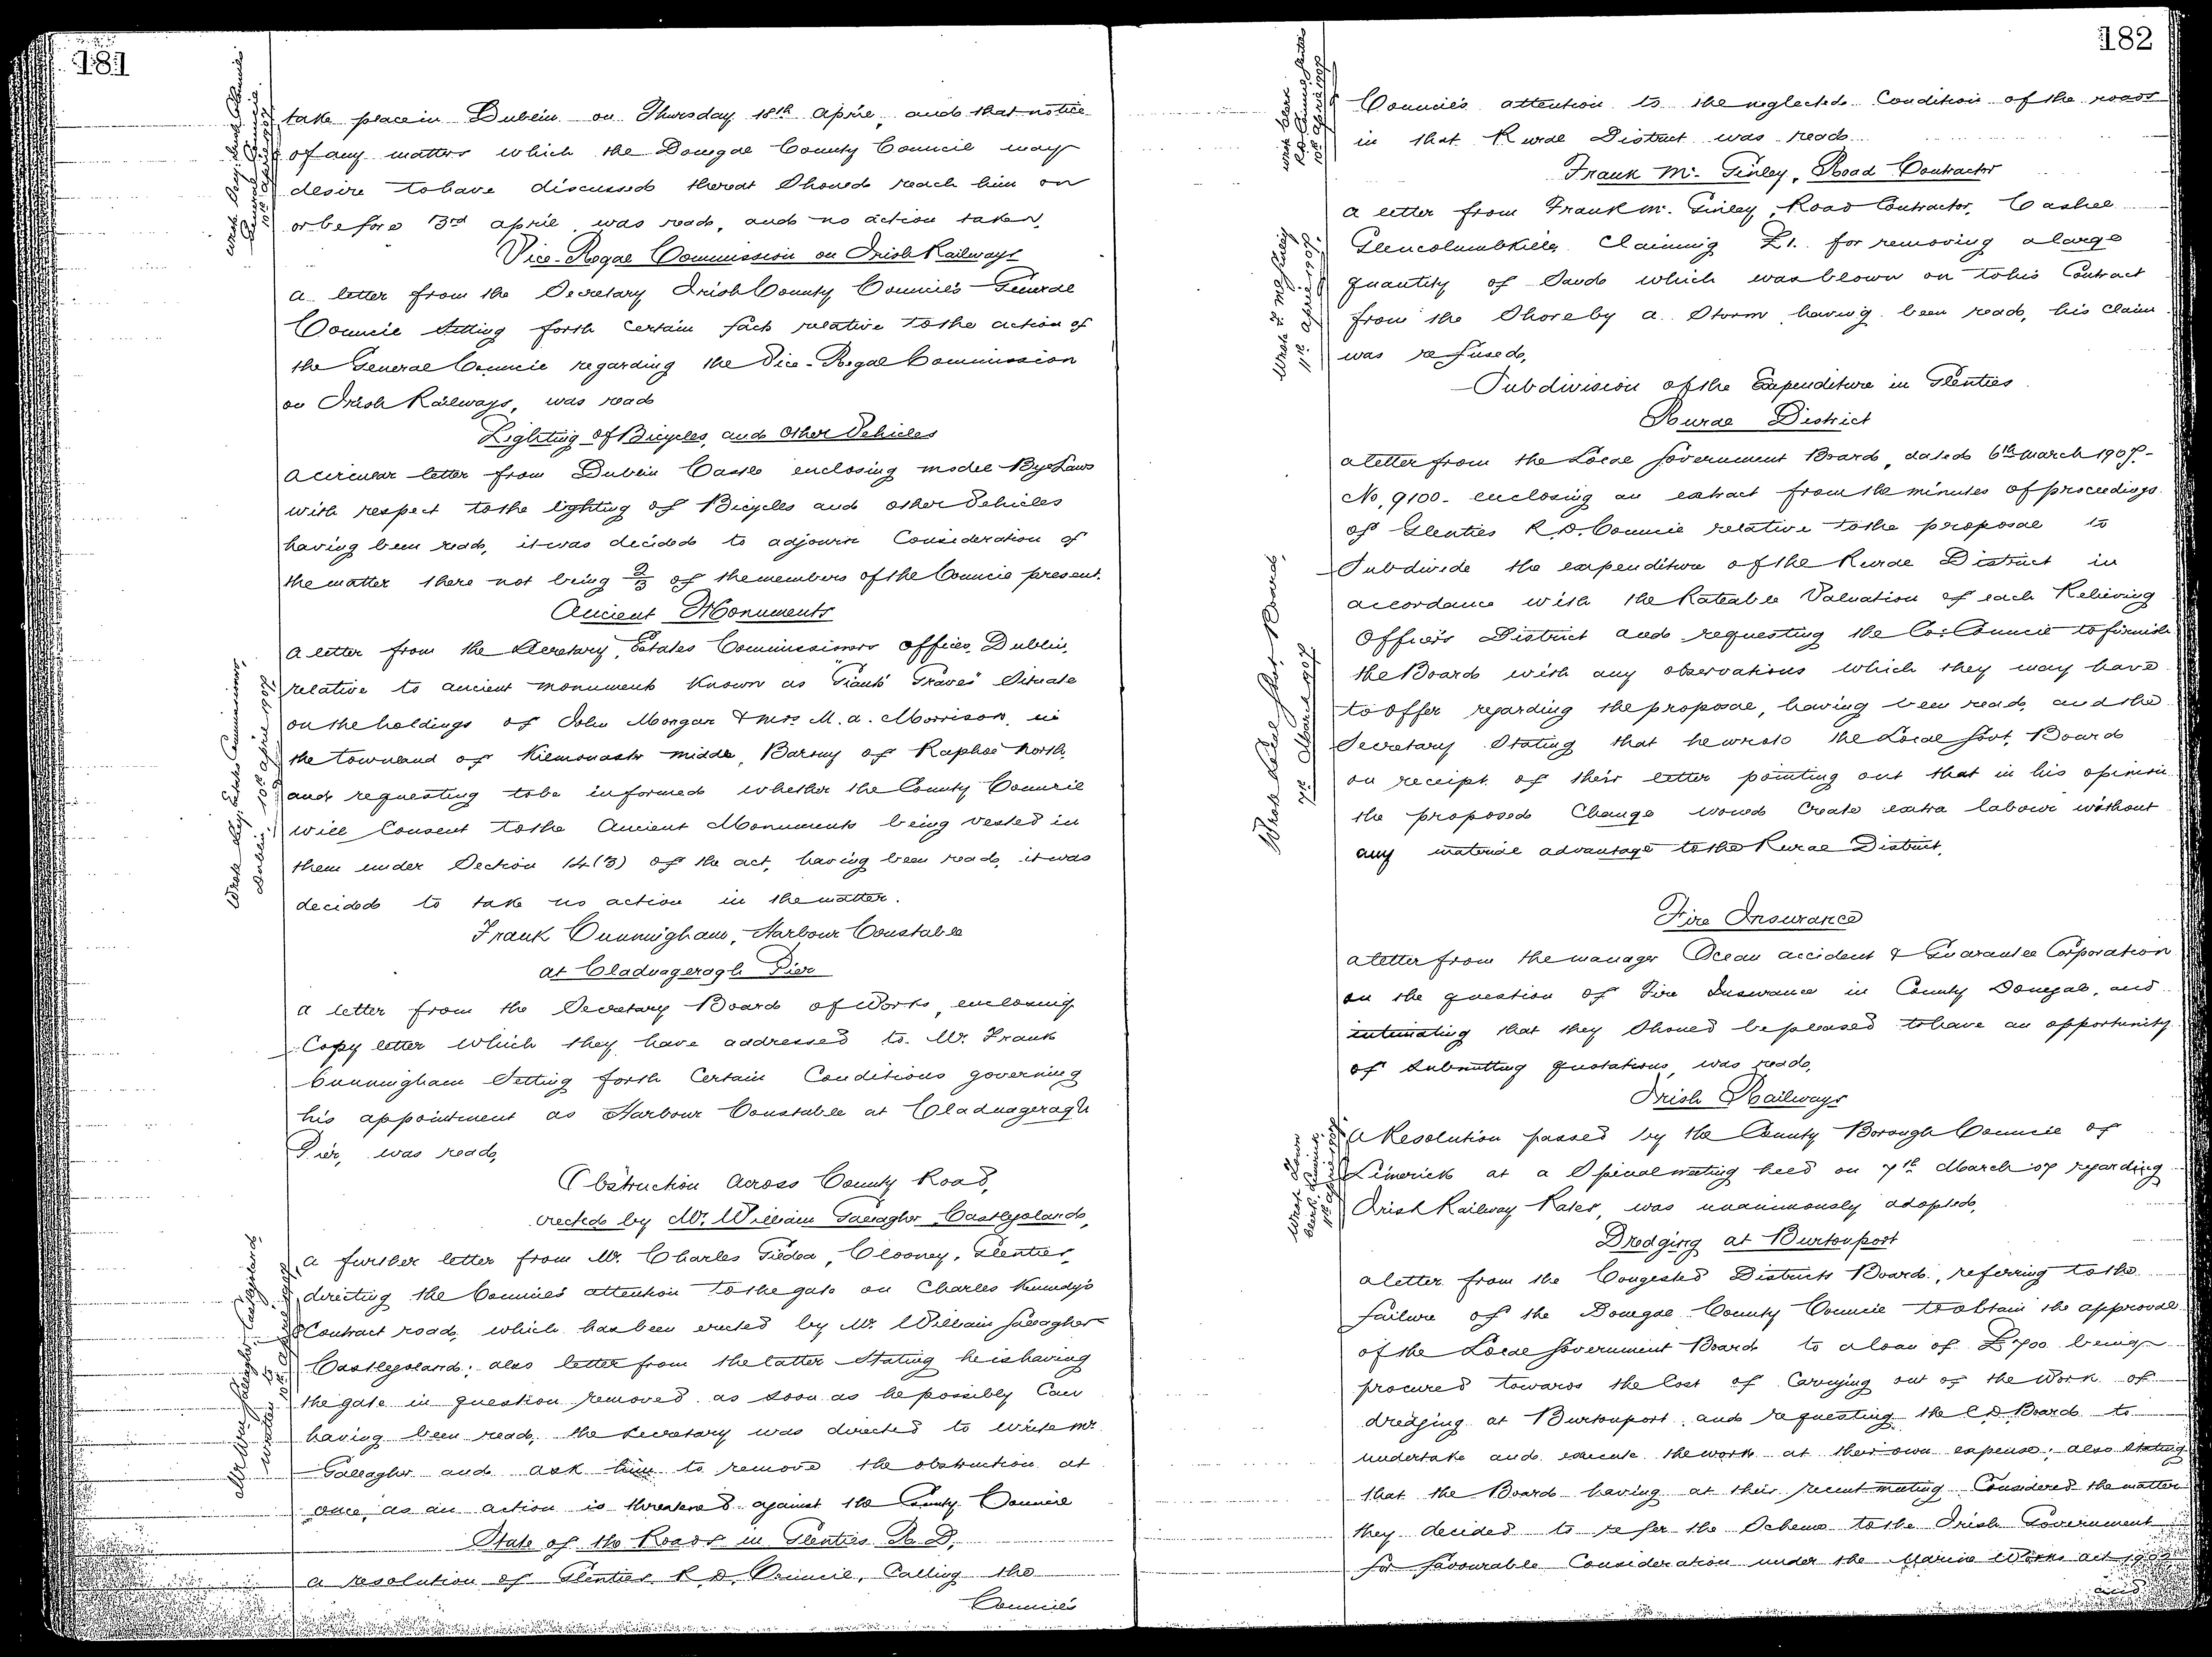 181
take place in Dublin on Thursday 18th April, and that notice
of any matters which the Donegal County Council may
desire to have discussed thereat should reach him on
or before 3rd April was read, and no action taken.
Vice-Regal Commission on Irish Railways
A letter from the Secretary Irish County Councils General
Council setting forth certain facts relative to the action of
the General Council regarding the Vice-Regal Commission
on Irish Railways, was read
Lighting of Bicycles, and Other Vehicles
A circular letter from Dublin Castle enclosing model Bye Laws
with respect to the lighting of Bicycles and other Vehicles
having been read, it was decided to adjourn Consideration of
the matter there not being 2/3 of the members of the Council present.
Ancient Monuments
A letter from the Secretary, Estates Commissioners Offices, Dublin,
relative to ancient monuments known as "Giants Graves" Situate
on the holdings of John Mongan & Mrs. M. A. Morrison, in
the townland of Kilmonaster Middle, Barony of Raphoe North,
and requesting to be informed whether the County Council
will Consent to the Ancient Monuments being vested in
them under Section 14(3) of the Act, having been read, it was
decided to take no action in the matter.
Wrote Secy. Estates Commissioners,
Dublin, 10th April 1907.
Frank Cunningham, Harbour Constable
at Cladnageragh Pier
A letter from the Secretary Board of Works, enclosing
Copy letter which they have addressed to Mr. Frank
Cunningham Setting forth Certain Conditions governing
his appointment as Harbour Constable at Cladnageragh
Pier, was read,
Obstruction Across County Road,
erected by Mr. William Gallagher, Castlegoland,
A further letter from Mr. Charles Gildea, Clooney, Glenties,
directing the Council's attention to the gate on Charles Kennedy's
Contract road, which has been erected by Mr. William Gallagher
Castlegoland; also letter from the latter Stating he is having
the gate in question removed as soon as he possibly Can
having been read, the Secretary was directed to write Mr.
Gallagher and ask him to remove the obstruction at
once, as an action is threatened against the County Council
Mr. Wm. Gallagher, Castlegoland,
written to 10th April 1907.
State of the Roads in Glenties R. D.
A resolution of Glenties R. D. Council, Calling the
Council's
182
Council's attention to the neglected Condition of the roads
in that Rural District was read
Wrote Clerk
R.D. Council Glenties
10th April 1907
Frank Mc. Ginley, Road Contractor
A letter from Frank Mc. Ginley, Road Contractor, Cashel
Glencolumbkille, Claiming £1. for removing a large
quantity of Sand which was blown on to his Contract
from the Shore by a Storm having been read, his claim
was refused,
Wrote F. McGinley
11th April 1907.
Subdivision of the Expenditure in Glenties
Rural District
A letter from the Local Government Board, dated 6th March 1907.-
No. 9100- enclosing an extract from the minutes of proceedings
of Glenties R.D. Council relative to the proposal to
Subdivide the expenditure of the Rural District in
accordance with the Rateable Valuation of each Relieving
Officers District and requesting the Co: Council to furnish
the Board with any observations which they may have
to offer regarding the proposal, having been read, and the
Secretary Stating that he wrote the Local Govt. Board
on receipt of their letter pointing out that in his opinion
the proposed Change would Create extra labour without
any material advantage to the Rural District.
Wrote Local Govt. Board,
7th March 1907.
Fire Insurance
A letter from the manager Ocean Accident & Guarantee Corporation
on the question of Fire Insurance in County Donegal, and
intimating that they Should be pleased to have an opportunity
of submitting quotations, was read,
Irish Railways
A Resolution passed by the County Borough Council of
Limerick at a Special meeting held on 7th March 07 regarding
Irish Railway Rates, was unanimously adopted,
Wrote Town
Clerk, Limerick,
11th April 1907
Dredging at Burtonport
A letter from the Congested Districts Board, referring to the
failure of the Donegal County Council to obtain the approval
of the Local Government Board to a loan of £700 being
procured towards the Cost of Carrying out of the Work of
dredging at Burtonport, and requesting the C.D. Board to
undertake and execute the work at their own expense; also stating
that the Board having at their recent meeting Considered the matter
they decided to refer the Scheme to the Irish Government
for favourable Consideration under the Marine Works Act 1902
and